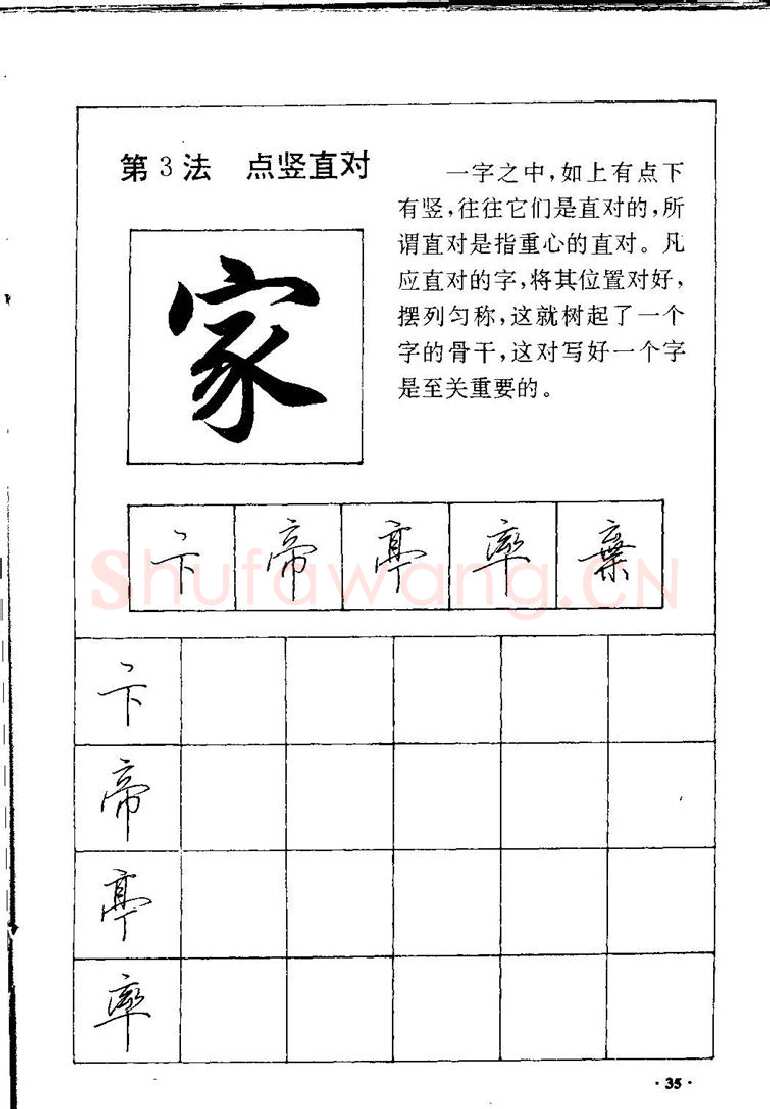 第3法 点竖直对
一字之中，如上有点下
有竖，往往它们是直对的，所
谓直对是指重心的直对。凡
应直对的字，将其位置对好，
摆列匀称，这就树起了一个
字的骨干，这对写好一个字
是至关重要的。
家
卞 帝 亭 率 棄
Shufawang.CN
卞
帝
亭
率
·35·